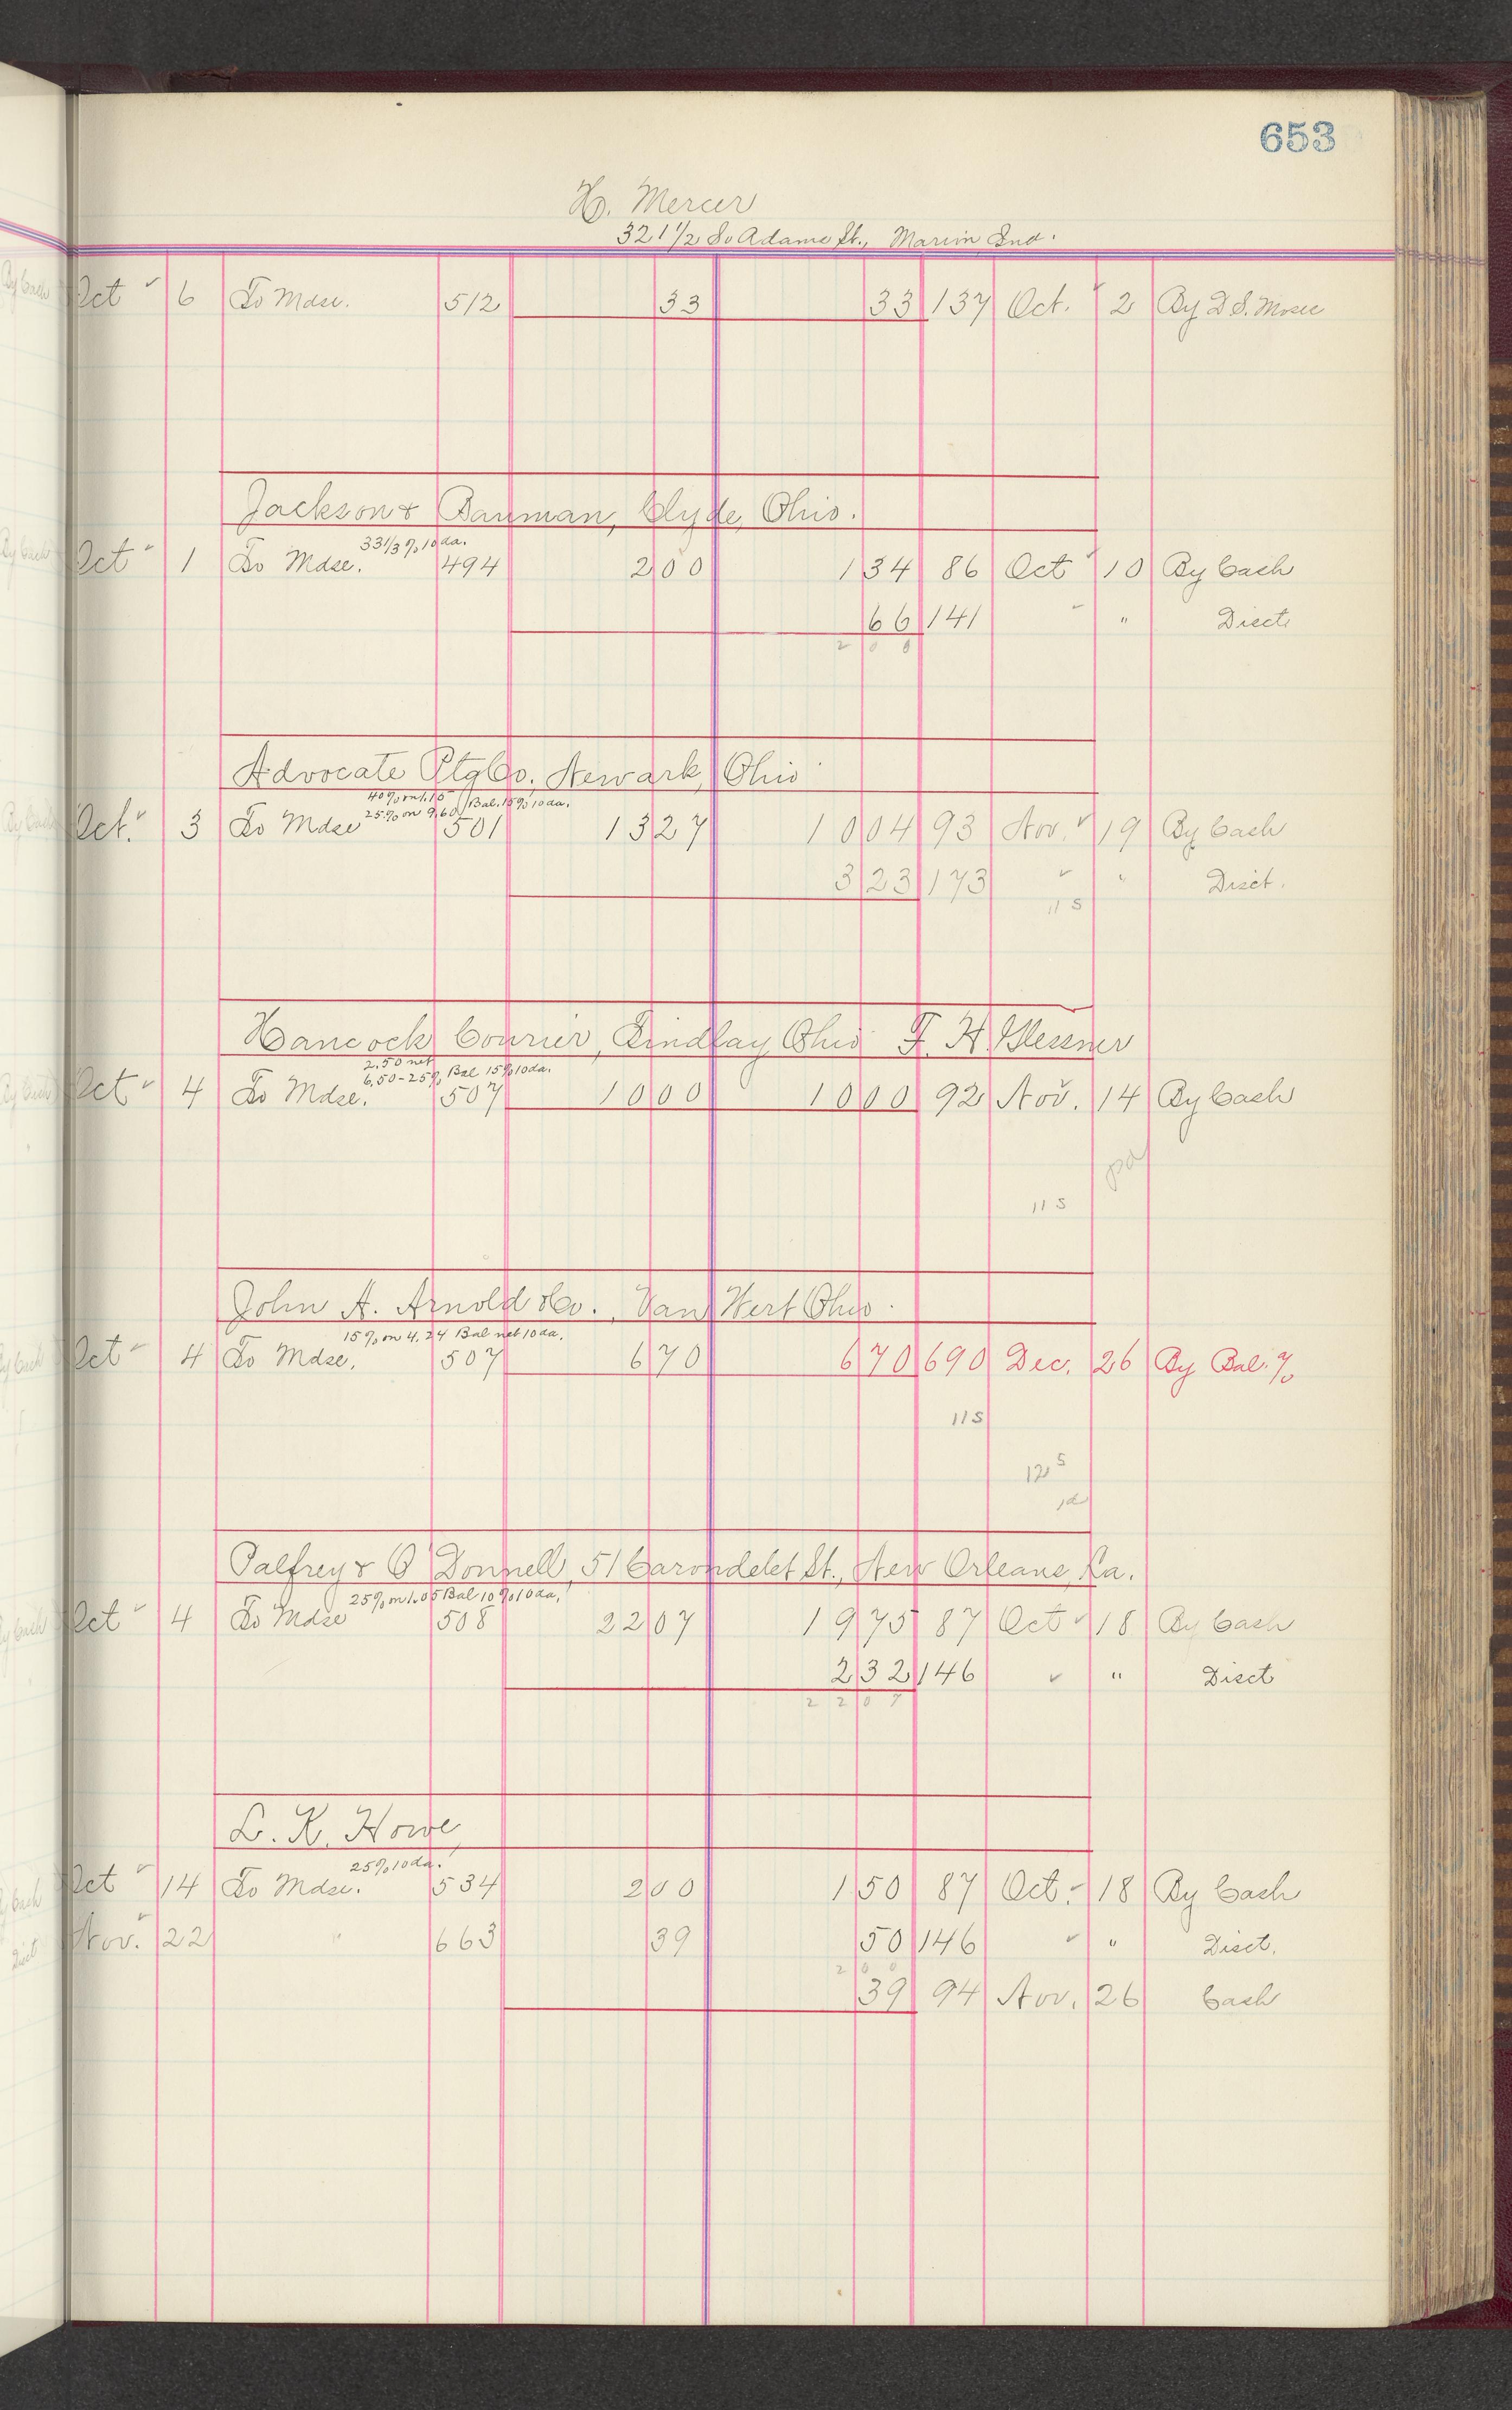 653
H. Mercer
321 1/2 So Adams St., Marion Ind.
Oct 6 To Mdse. 512 33 33 137 Oct. 2 By D S. Mdse
Jackson & Bauman, Clyde, Ohio.
33 1/3 % 10 da.
Oct 1 To Mdse. 494 200 134 86 Oct 10 By Cash
66 141 " Disct
2 0 0
Advocate Ptg Co. Newark, Ohio
40% on 1.15
25% on 9.60 / Bal. 15% 10 da.
Oct. 3 To Mdse 501 1327 1004 93 Nov. 19 By Cash
323 173 " Disct.
11 5
Hancock Courier, Findlay, Ohio F. H. Glessner
2.50 net
6.50 - 25% Bal 15% 10 da.
Oct 4 To Mdse. 507 1000 1000 92 Nov. 14 By Cash
pd
11 5
John A. Arnold & Co., Van Wert Ohio.
15% on 4.24 Bal net 10 da.
Oct 4 To Mdse. 507 670 670 690 Dec. 26 By Bal. %
11 5
12 5
Palfrey & O'Donnell, 51 Carondelet St., New Orleans, La.
25% on 1.05 Bal 10% 10 da.
Oct 4 To Mdse 508 2207 1975 87 Oct 18 By Cash
232 146 " Disct
2 2 0 7
L. K. Howe
25% 10 da.
Oct 14 To Mdse. 534 200 150 87 Oct. 18 By Cash
Nov. 22 " 663 39 50 146 " Disct.
2 0 0
39 94 Nov. 26 Cash